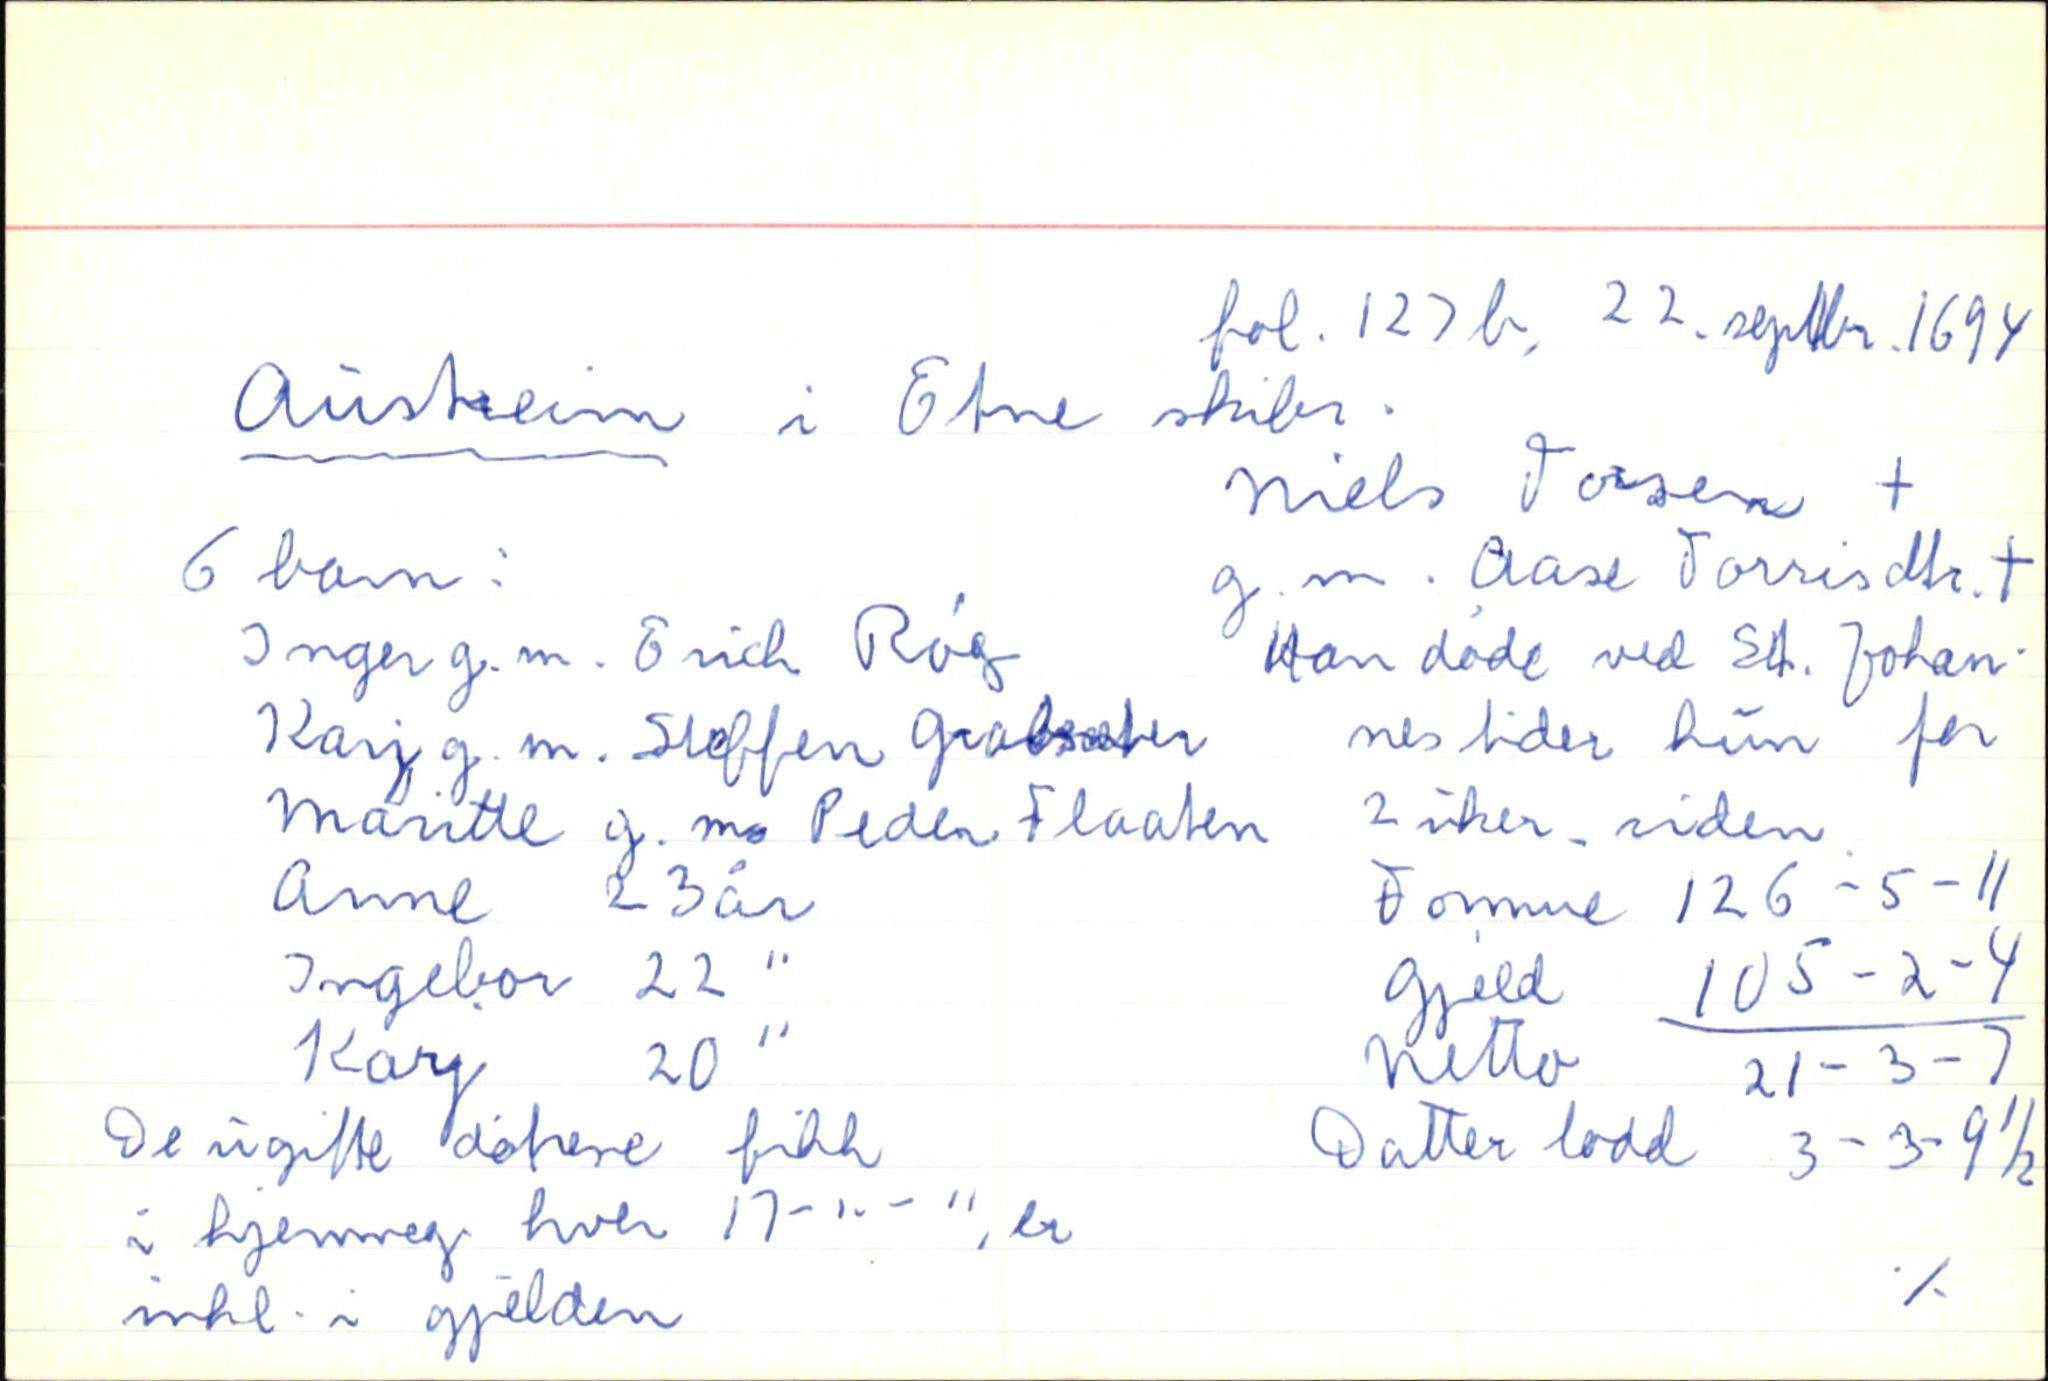 fol. 127 b, 22. septbr. 1694
Austreim i Etne skibr.
Niels Torsen †
g. m. Aase Torrisdtr. †
Han døde ved St. Johan-
nes tider hun for
2 uker siden
Formue 126 - 5 - 11
Gjeld 105 - 2 - 4
Netto 21 - 3 - 7
Datter lodd 3 - 3 - 9 1/2
6 barn:
Inger g. m. Erich Røg
Karj g. m. Steffen
Maritte g. m. Peder Flaaten
Anne 23 år
Ingebor 22 "
Karj 20 "
De ugifte døtrene fikk
i hjemmeg. hver 17 - " - ", er
inkl. i gjelden
./.